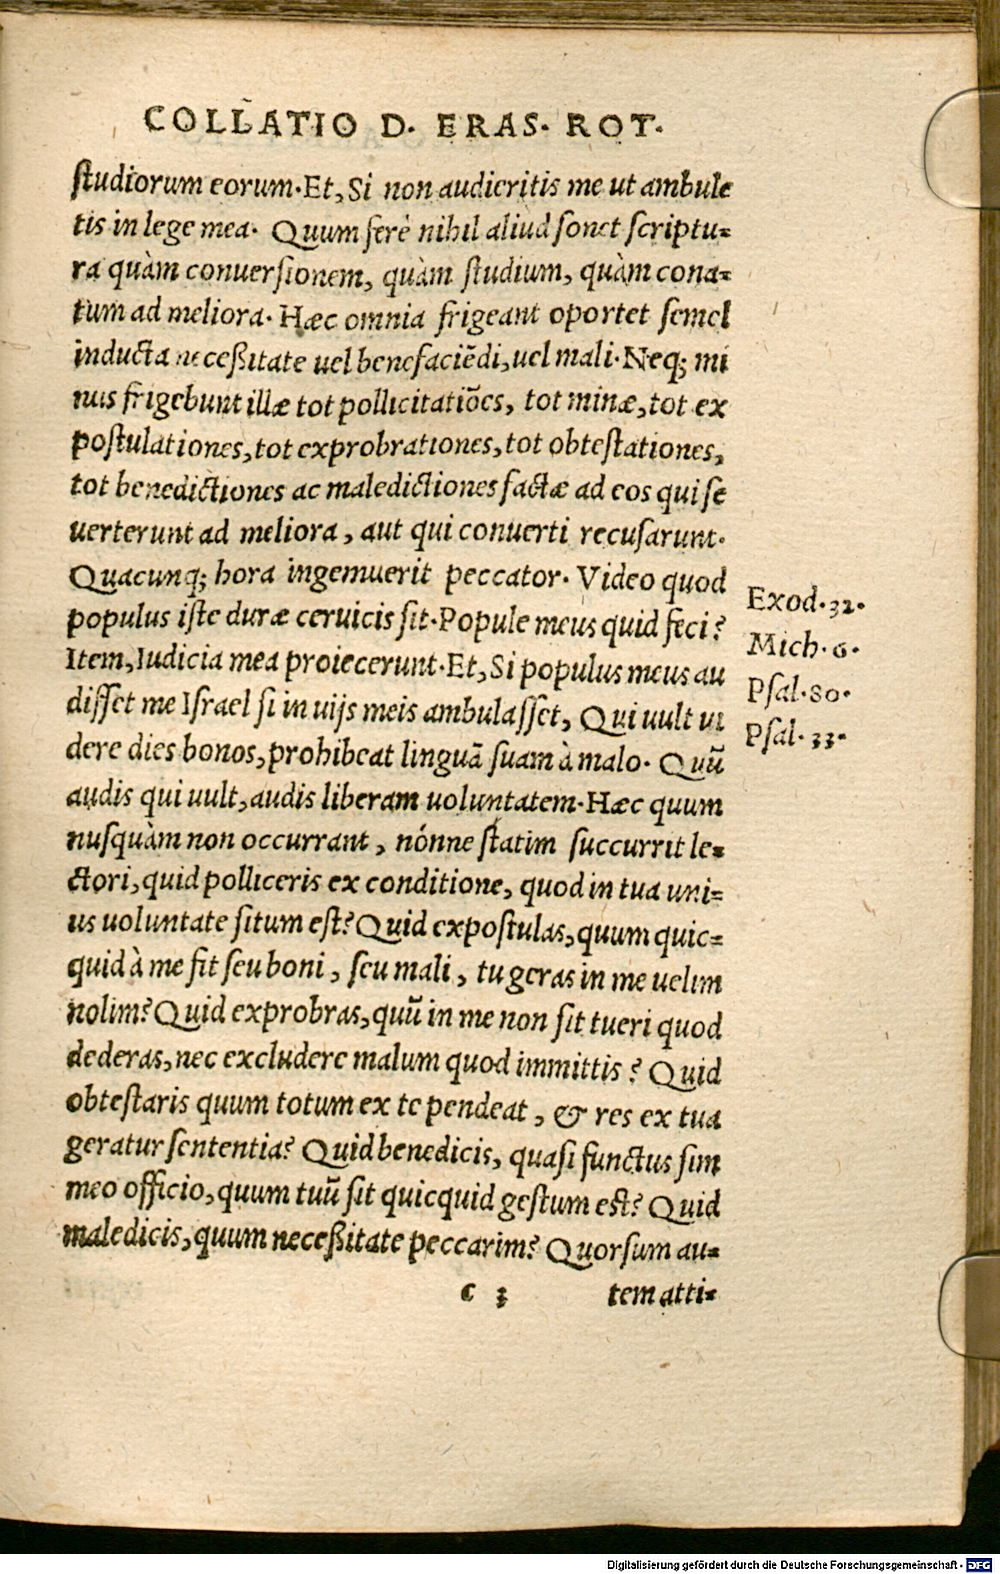 COLLATIO D. ERAS. ROT.
studiorum eorum. Et, Si non audieritis me ut ambule
tis in lege mea. Quum ferè nihil aliud sonet scriptu-
ra quàm conuersionem, quàm studium, quàm cona-
tum ad meliora. Hæc omnia frigeant oportet semel
inducta necessitate uel benefaciēdi, uel mali. Neq; mi
nus frigebunt illæ tot pollicitatiōes, tot minæ, tot ex
postulationes, tot exprobrationes, tot obtestationes,
tot benedictiones ac maledictiones factæ ad eos qui se
uerterunt ad meliora, aut qui conuerti recusarunt.
Quacunq; hora ingemuerit peccator. Video quod
populus iste duræ ceruicis sit. Popule meus quid feci?
Exod. 32.
Item, Iudicia mea proiecerunt. Et, Si populus meus au
Mich. 6.
disset me Israel si in uijs meis ambulasset, Qui uult ui
Psal. 80.
dere dies bonos, prohibeat linguā suam à malo. Quū
Psal. 33.
audis qui uult, audis liberam uoluntatem. Hæc quum
nusquàm non occurrant, nónne statim succurrit le-
ctori, quid polliceris ex conditione, quod in tua uni-
us uoluntate situm est? Quid expostulas, quum quic-
quid à me fit seu boni, seu mali, tu geras in me uelim
nolim? Quid exprobras, quū in me non sit tueri quod
dederas, nec excludere malum quod immittis? Quid
obtestaris quum totum ex te pendeat, & res ex tua
geratur sententia? Quid benedicis, quasi functus sim
meo officio, quum tuū sit quicquid gestum est? Quid
maledicis, quum necessitate peccarim? Quorsum au-
c 3 tem atti-
Digitalisierung gefördert durch die Deutsche Forschungsgemeinschaft - DFG